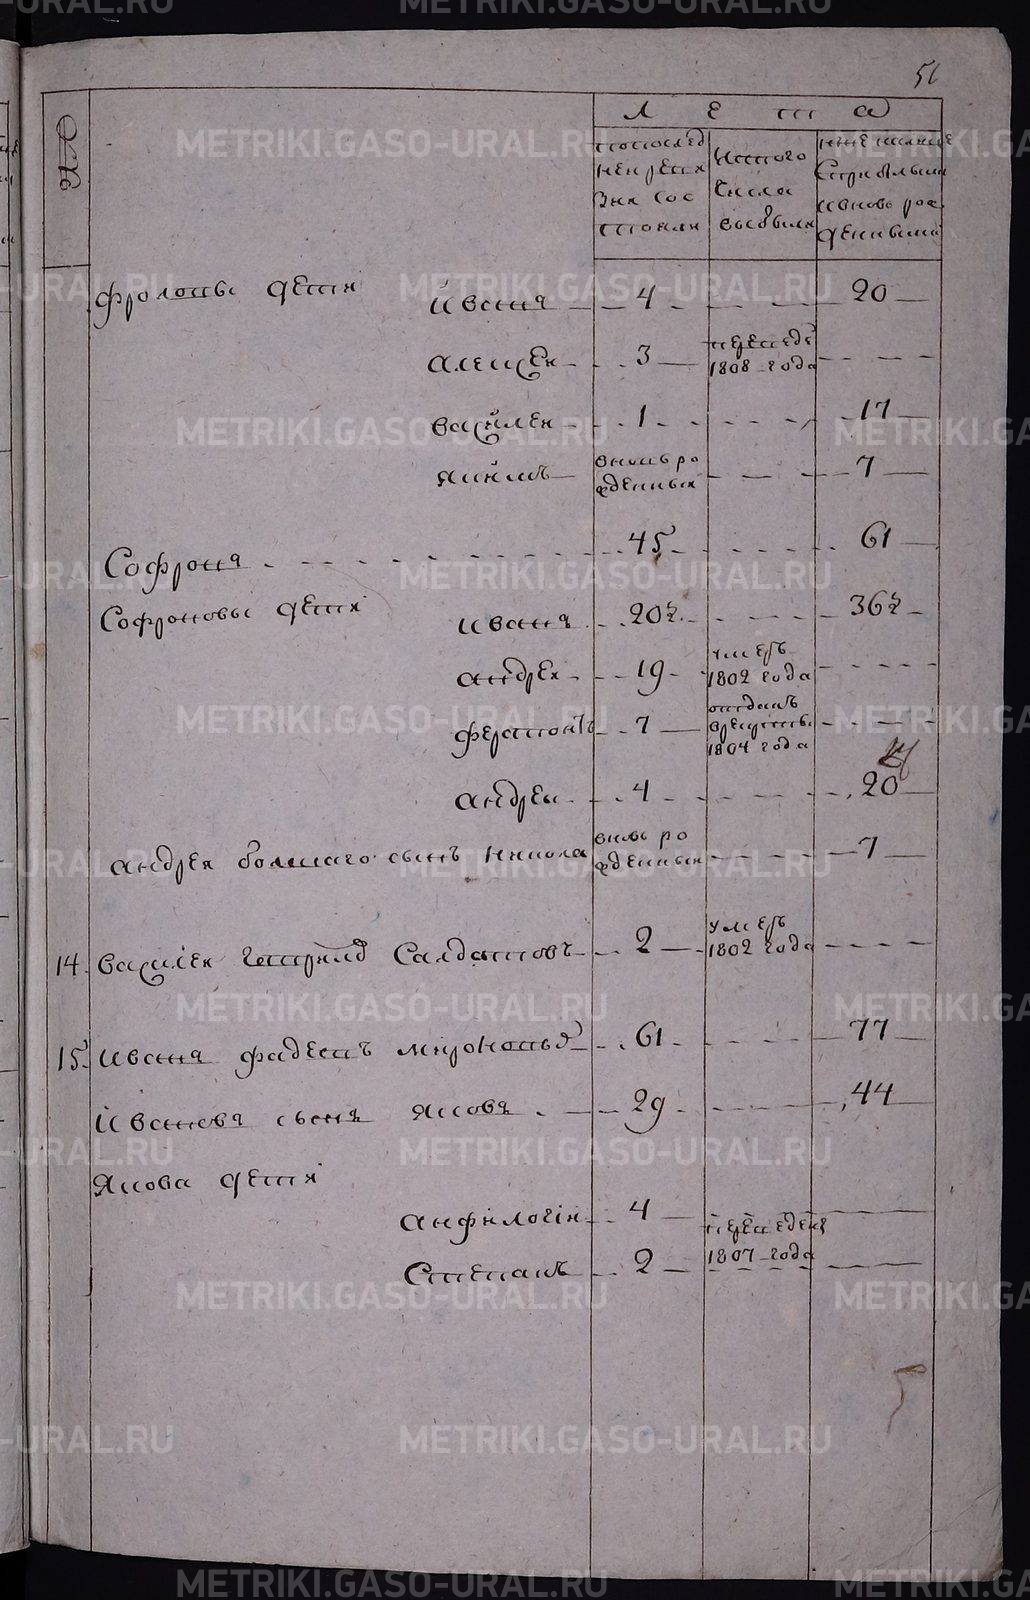 №№
Лета
по последней ревизии состояли
ис того числа выбыли
ныне налицо с прибылыми и вновь рожденными
фроловы дети
Иванъ 4 20
Алексей 3 переведен 1808 года
Василей 1 17
Якимъ вновь рожденный 7
Софронъ 45 61
Софроновы дети
Иванъ 20½ 36½
Андрей 19 умеръ 1802 года
ферапонтъ 7 отданъ в рекруты 1804 года
Андрей 4 20
Андрея болшаго сынъ Никола вновь рожденный 7
14. Василей Салдатовъ 2 умеръ 1802 года
15. Иванъ фадеевъ 61 77
Ивановъ сынъ Яковъ 29 44
Якова дети
Анфилогей 4 переведены
Степанъ 2 1807 года
METRIKI.GASO-URAL.RU